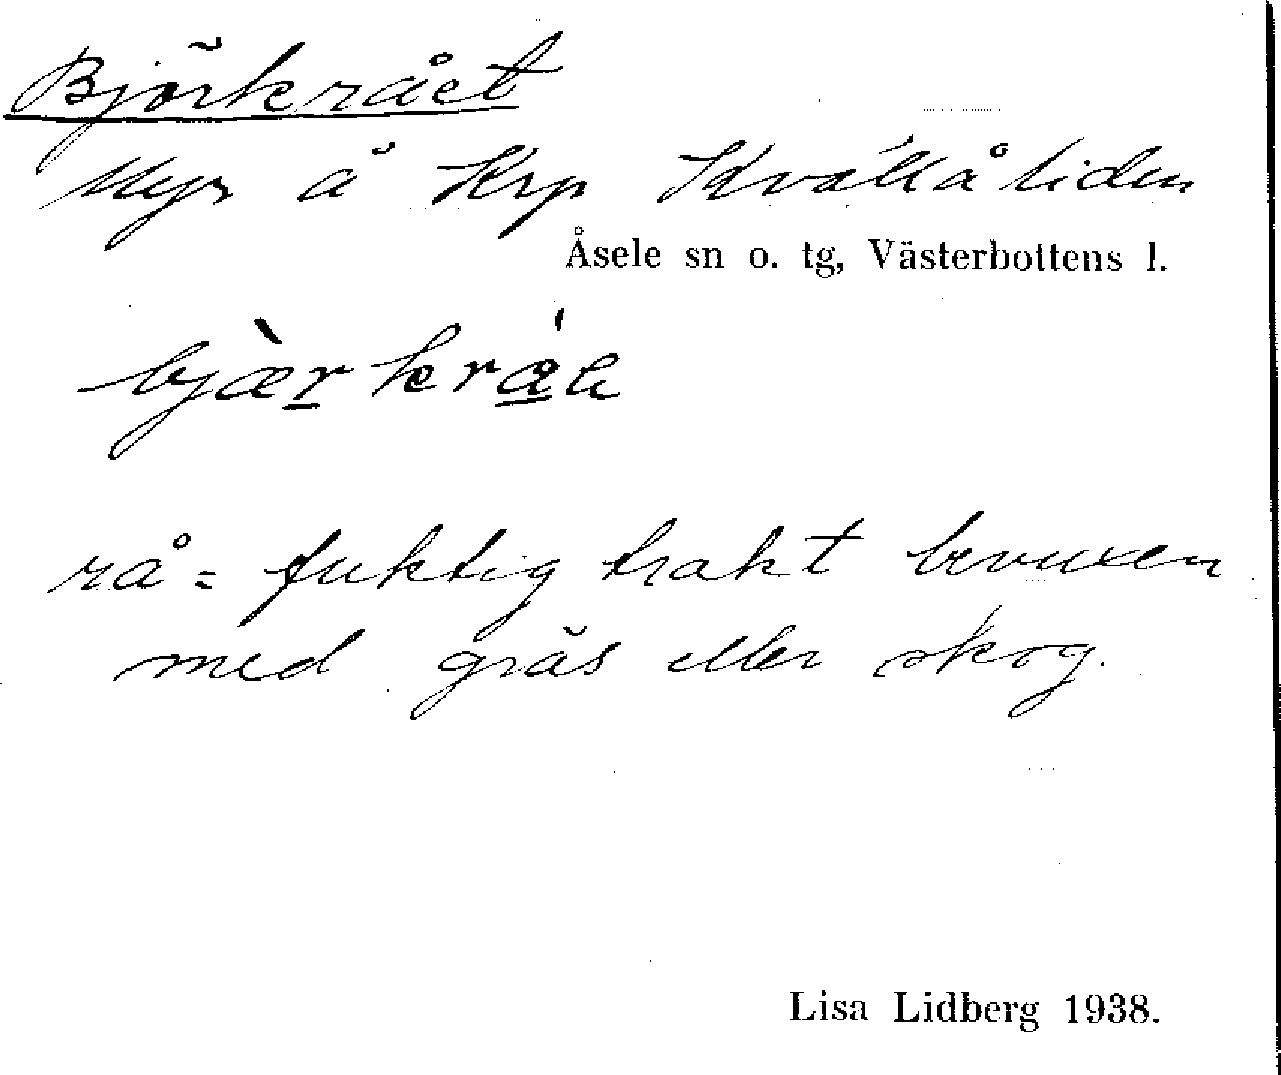 Björkrået
Myr å Krp Kvällåliden
Åsele sn o. tg, Västerbottens l.
rå = fuktig trakt bevuxen
med gräs eller skog.
Lisa Lidberg 1938.